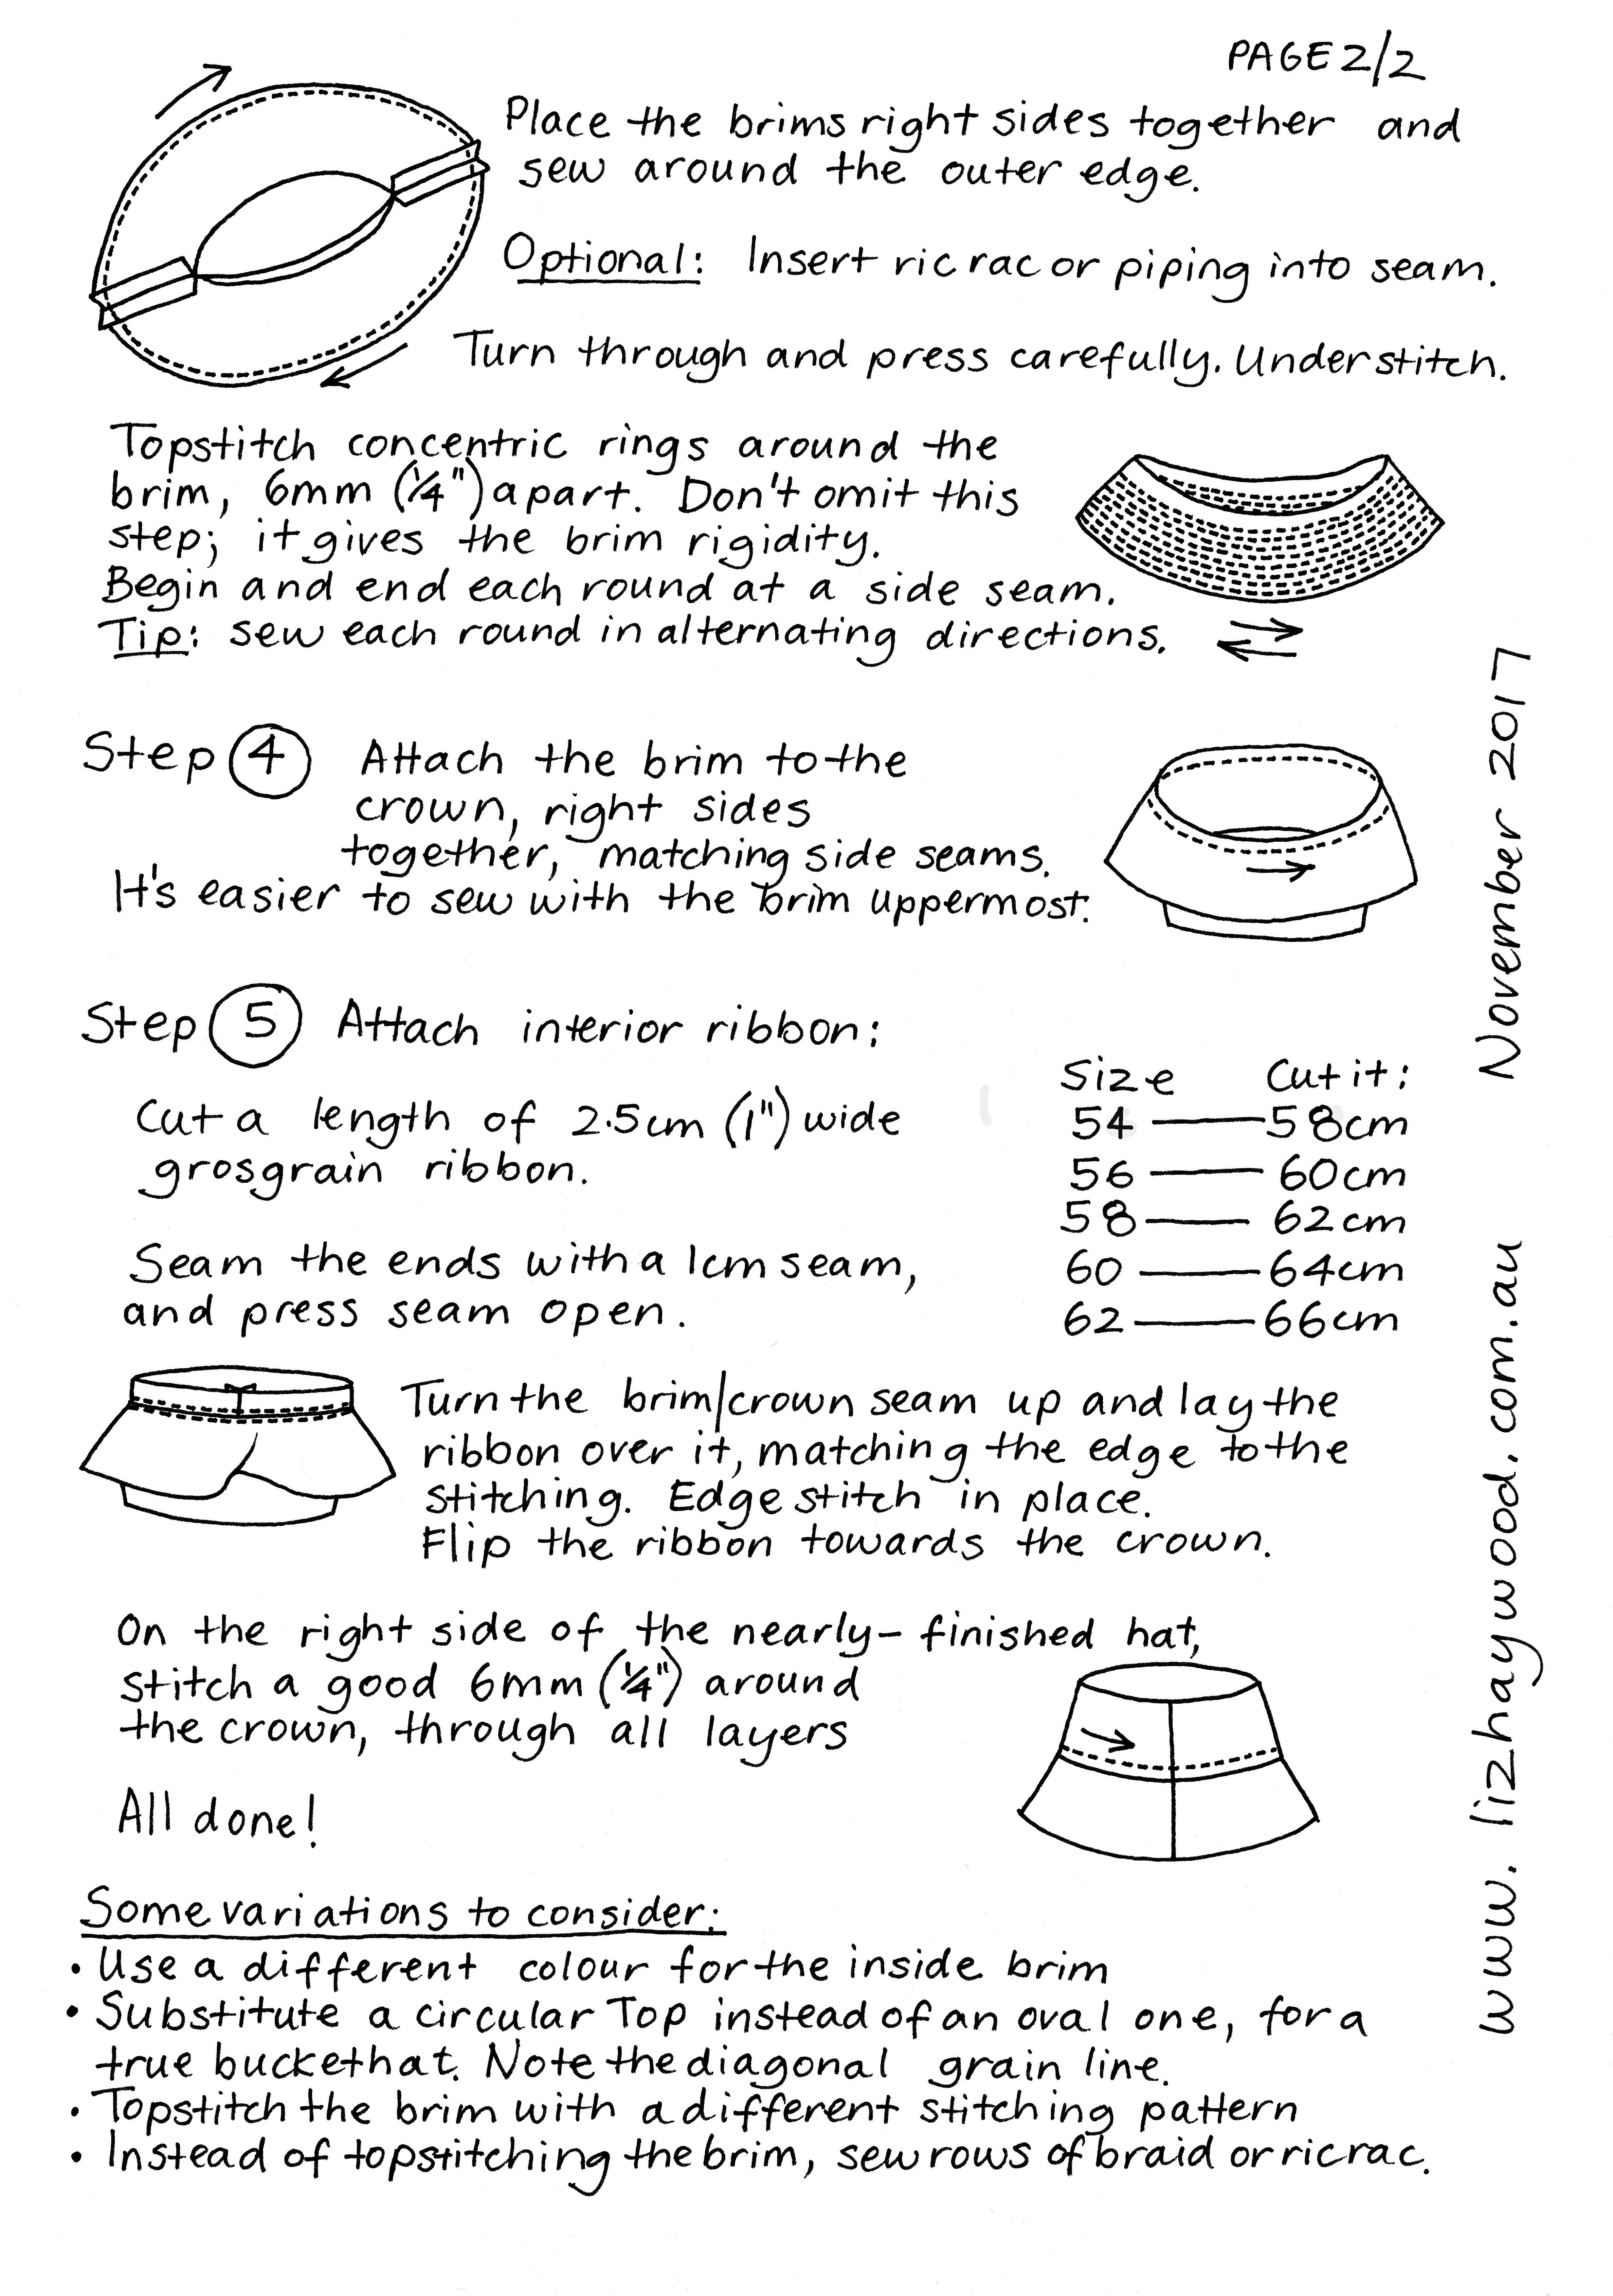 PAGE 2/2
Place the brims right sides together and
sew around the outer edge.
Optional: Insert ric rac or piping into seam.
Turn through and press carefully. Understitch.
Topstitch concentric rings around the
brim, 6mm (1/4") apart. Don't omit this
step; it gives the brim rigidity.
Begin and end each round at a side seam.
Tip: sew each round in alternating directions.
Step 4 Attach the brim to the
crown, right sides
together, matching side seams.
It's easier to sew with the brim uppermost.
Step 5 Attach interior ribbon:
Cut a length of 2.5cm (1") wide
grosgrain ribbon.
Seam the ends with a 1cm seam,
and press seam open.
Size Cut it:
54 — 58cm
56 — 60cm
58 — 62cm
60 — 64cm
62 — 66cm
Turn the brim/crown seam up and lay the
ribbon over it, matching the edge to the
stitching. Edgestitch in place.
Flip the ribbon towards the crown.
On the right side of the nearly-finished hat,
stitch a good 6mm (1/4") around
the crown, through all layers
All done!
Some variations to consider:
• Use a different colour for the inside brim
• Substitute a circular Top instead of an oval one, for a
true buckethat. Note the diagonal grain line.
• Topstitch the brim with a different stitching pattern
• Instead of topstitching the brim, sew rows of braid or ric rac.
www.lizhaywood.com.au November 2017